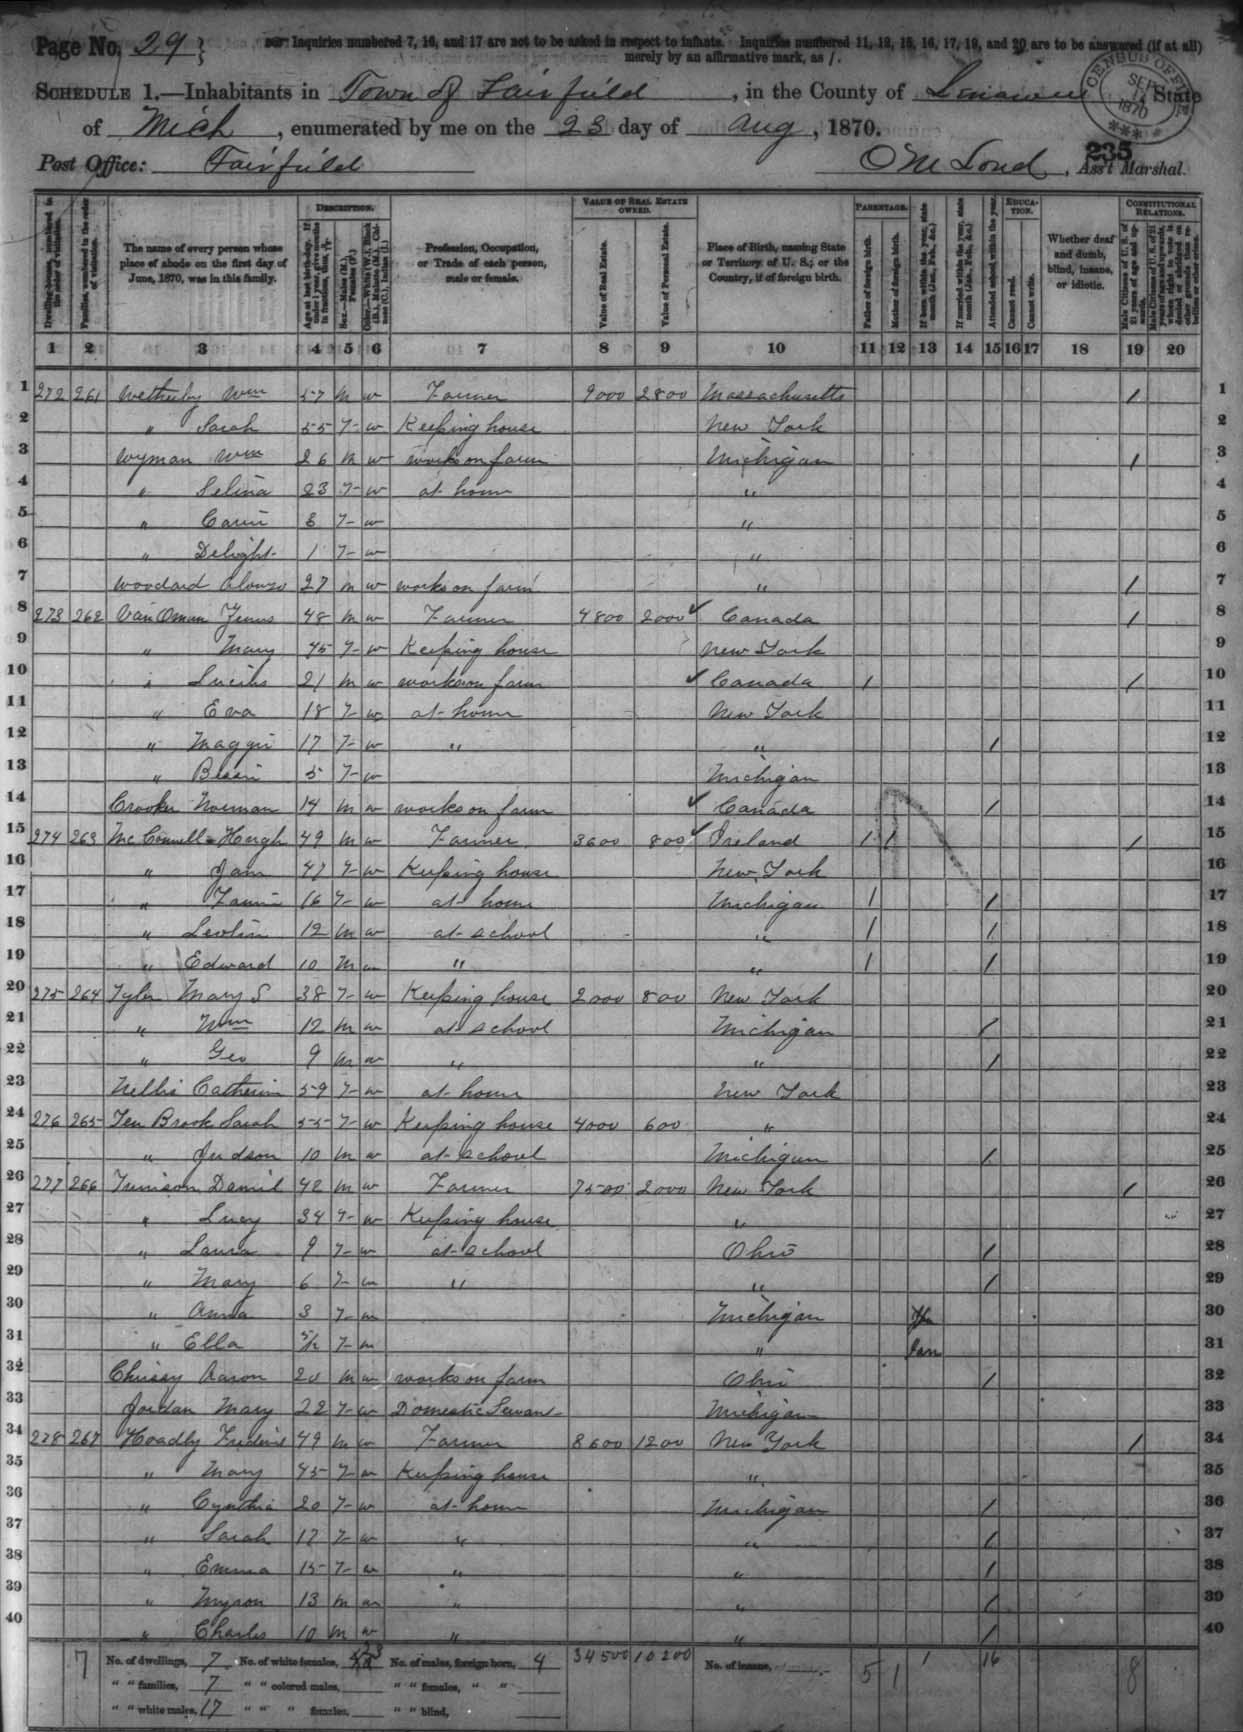 Page No. 29
Inquiries numbered 7, 16, and 17 are not to be asked in respect to infants. Inquiries numbered 11, 12, 15, 16, 17, 19, and 20 are to be answered (if at all)
merely by an affirmative mark, as /.
SCHEDULE 1.—Inhabitants in Town of Fairfield, in the County of Lenawee, State
of Mich, enumerated by me on the 23 day of Aug, 1870.
CENSUS OFFICE SEP 1870
235
Post Office: Fairfield O M Loud, Ass't Marshal.
DESCRIPTION. VALUE OF REAL ESTATE OWNED. PARENTAGE. EDUCATION. CONSTITUTIONAL RELATIONS.
Dwelling-houses, numbered in the order of visitation.
Families, numbered in the order of visitation.
The name of every person whose place of abode on the first day of June, 1870, was in this family.
Age at last birth-day. If under 1 year, give months in fractions, thus, 3/12.
Sex.—Males (M.), Females (F.)
Color.—White (W.), Black (B.), Mulatto (M.), Chinese (C.), Indian (I.)
Profession, Occupation, or Trade of each person, male or female.
Value of Real Estate.
Value of Personal Estate.
Place of Birth, naming State or Territory of U. S.; or the Country, if of foreign birth.
Father of foreign birth.
Mother of foreign birth.
If born within the year, state month (Jan., Feb., &c.)
If married within the year, state month (Jan., Feb., &c.)
Attended school within the year.
Cannot read.
Cannot write.
Whether deaf and dumb, blind, insane, or idiotic.
Male Citizens of U. S. of 21 years of age and upwards.
1 2 3 4 5 6 7 8 9 10 11 12 13 14 15 16 17 18 19 20
1 272 261 Wetherby Wm 57 M W Farmer 9000 2800 Massachusetts / 1
2 " Sarah 55 F W Keeping house New York 2
3 Wyman Wm 26 M W works on farm Michigan / 3
4 " Selina 23 F W at home " 4
5 " Carrie F W " 5
6 " Delight 1 F W " 6
7 Woodard Alonzo 27 M W works on farm " / 7
8 273 262 48 M W Farmer 4800 2000 ✓ Canada / 8
9 " Mary 45 F W Keeping house New York 9
10 " 21 M W works on farm ✓ Canada / / 10
11 " Eva 18 F W at home New York 11
12 " Maggie 17 F W " " / 12
13 " Bessie 5 F W Michigan 13
14 Crooker Norman 14 M W works on farm ✓ Canada / 14
15 274 263 McConnell Hugh 49 M W Farmer 3600 800 ✓ Ireland / / / 15
16 " Jane 47 F W Keeping house New York 16
17 " Fannie 16 F W at home Michigan / / 17
18 " 12 M W at school " / / 18
19 " Edward 10 M W " " / / 19
20 275 264 Tyler Mary S 38 F W Keeping house 2000 800 New York 20
21 " Wm 12 M W at school Michigan / 21
22 " Geo 9 M W " " / 22
23 Nellis Catherine 59 F W at home New York 23
24 276 265 Ten Brook Sarah 55 F W Keeping house 4000 600 " 24
25 " Judson 10 M W at school Michigan / 25
26 277 266 Daniel 42 M W Farmer 7500 2000 New York / 26
27 " Lucy 34 F W Keeping house " 27
28 " Laura 9 F W at school Ohio / 28
29 " Mary 6 F W " " / 29
30 " Anna 3 F W Michigan 30
31 " Ella 5/12 F W " Jan 31
32 Aaron 20 M W works on farm Ohio / 32
33 Jordan Mary 22 F W Domestic Servant Michigan 33
34 278 267 Hoadly Frederic 49 M W Farmer 8600 1200 New York / 34
35 " Mary 45 F W Keeping house " 35
36 " Cynthia 20 F W at home Michigan / 36
37 " Sarah 17 F W " " / 37
38 " Emma 15 F W " " / 38
39 " Myron 13 M W " " / 39
40 " Charles 10 M W " " / 40
7 No. of dwellings, 7 No. of white females, 23 No. of males, foreign born, 4 34500 10200 No. of insane, 5 1 1 16 8
" " families, 7 " " colored males, " " females, " "
" " white males, 17 " " " females, " " blind,